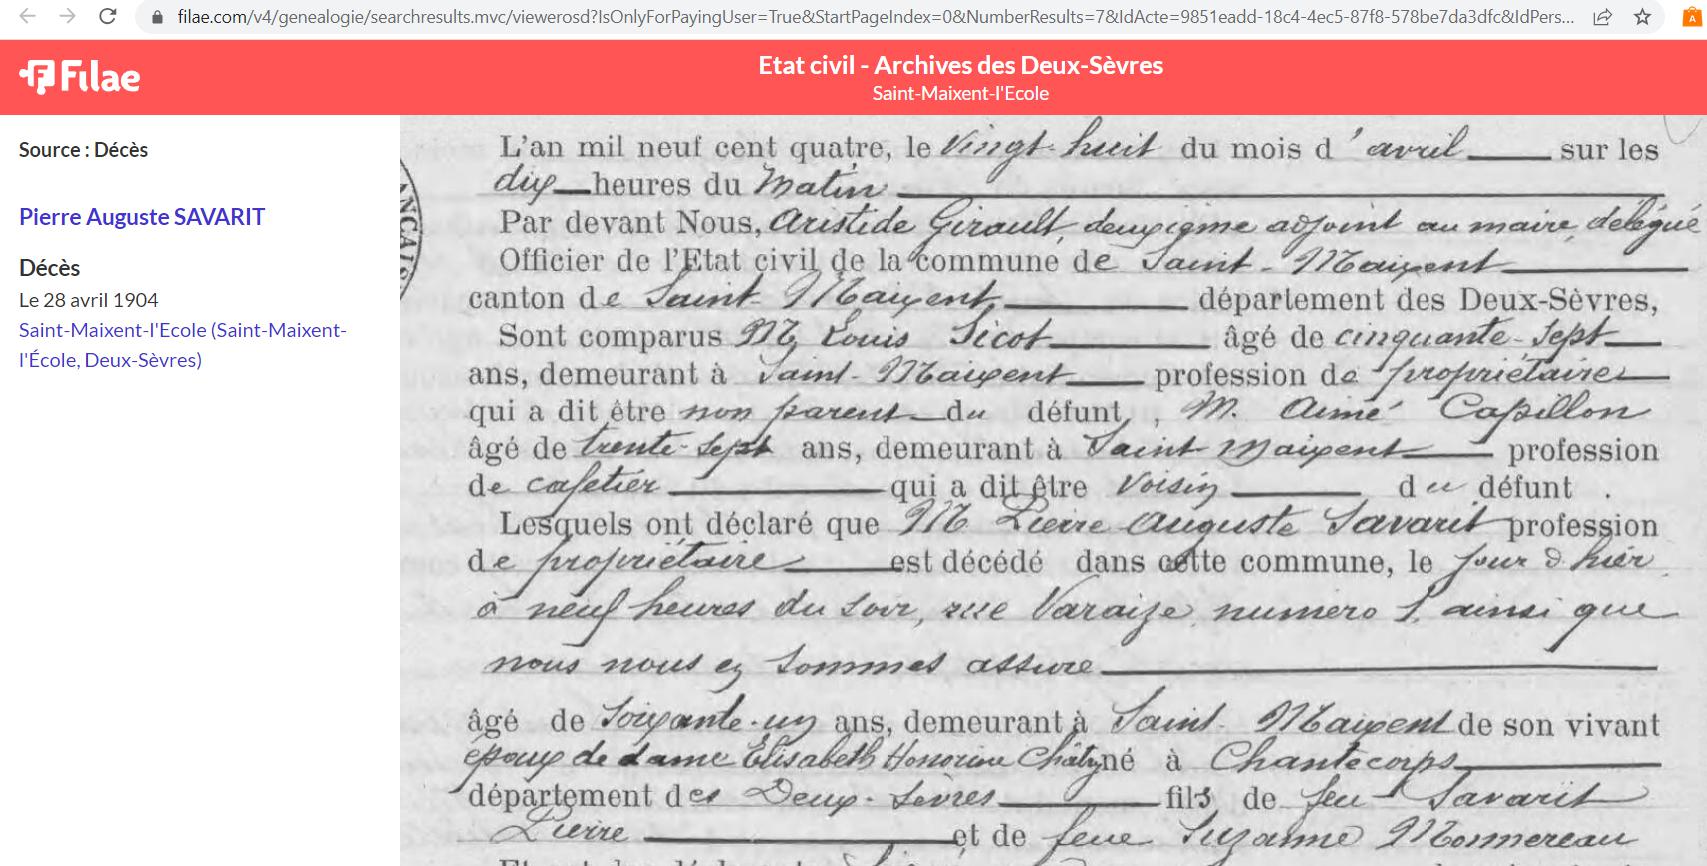 filae.com/v4/genealogie/searchresults.mvc/viewerosd?IsOnlyForPayingUser=True&StartPageIndex=0&NumberResults=7&IdActe=9851eadd-18c4-4ec5-87f8-578be7da3dfc&IdPers...
Filae
Etat civil - Archives des Deux-Sèvres
Saint-Maixent-l'Ecole
Source : Décès
Pierre Auguste SAVARIT
Décès
Le 28 avril 1904
Saint-Maixent-l'Ecole (Saint-Maixent-
l'École, Deux-Sèvres)
L'an mil neuf cent quatre, le Vingt-huit du mois d'avril sur les
dix heures du Matin
Par devant Nous, Aristide Girault, deuxième adjoint au maire, délégué
Officier de l'Etat civil de la commune de Saint-Maixent
canton de Saint-Maixent, département des Deux-Sèvres,
Sont comparus M. Louis Sicot âgé de cinquante-sept
ans, demeurant à Saint-Maixent profession de propriétaire
qui a dit être non parent du défunt, M. Aimé Capillon
âgé de trente-sept ans, demeurant à Saint-Maixent profession
de cafetier qui a dit être Voisin du défunt.
Lesquels ont déclaré que M. Pierre Auguste Savarit profession
de propriétaire est décédé dans cette commune, le jour d'hier
à neuf heures du soir, rue Varaize, numéro 1, ainsi que
nous nous en sommes assuré
âgé de Soixante-un ans, demeurant à Saint-Maixent de son vivant
époux de dame Elisabeth Honorine né à Chantecorps
département des Deux-Sèvres fils de feu Savarit
Pierre et de feue Suzanne Monnereau